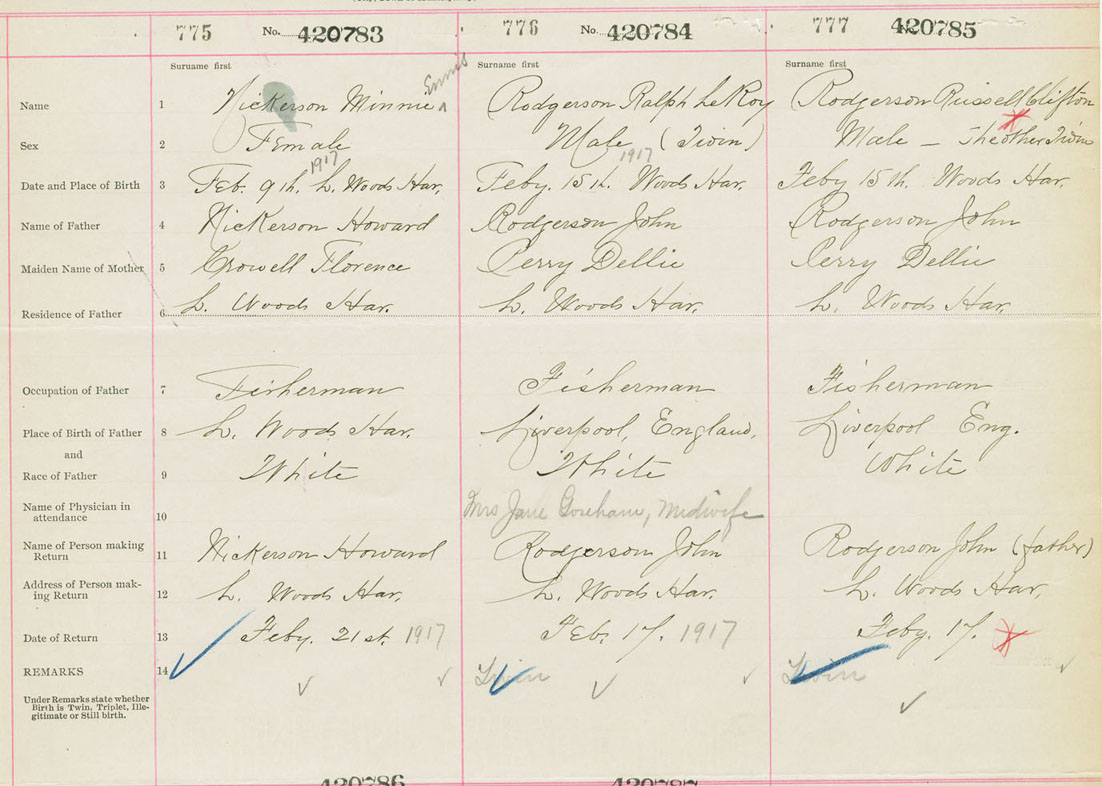 775 No. 420783 776 No. 420784 777 No. 420785
Surname first Surname first Surname first
Ennis
Name 1 Nickerson Minnie ^ Rodgerson Ralph LeRoy Rodgerson Russell Clifton
Sex 2 Female Male (Twin) Male – The other Twin
1917 1917
Date and Place of Birth 3 Feb. 9th. L. Woods Har. Feby. 15th. Woods Har. Feby 15th. Woods Har.
Name of Father 4 Nickerson Howard Rodgerson John Rodgerson John
Maiden Name of Mother 5 Crowell Florence Perry Dellie Perry Dellie
Residence of Father 6 L. Woods Har. L. Woods Har. L. Woods Har.
Occupation of Father 7 Fisherman Fisherman Fisherman
Place of Birth of Father 8 L. Woods Har. Liverpool, England, Liverpool Eng.
and
Race of Father 9 White White White
Name of Physician in
attendance 10 Mrs Jane Goreham, Midwife
Name of Person making
Return 11 Nickerson Howard Rodgerson John Rodgerson John (father)
Address of Person mak-
ing Return 12 L. Woods Har. L. Woods Har. L. Woods Har.
Date of Return 13 Feby. 21st. 1917 Feb. 17. 1917 Feby. 17.
REMARKS 14 Twin Twin
Under Remarks state whether
Birth is Twin, Triplet, Ille-
gitimate or Still birth.
420786 420787